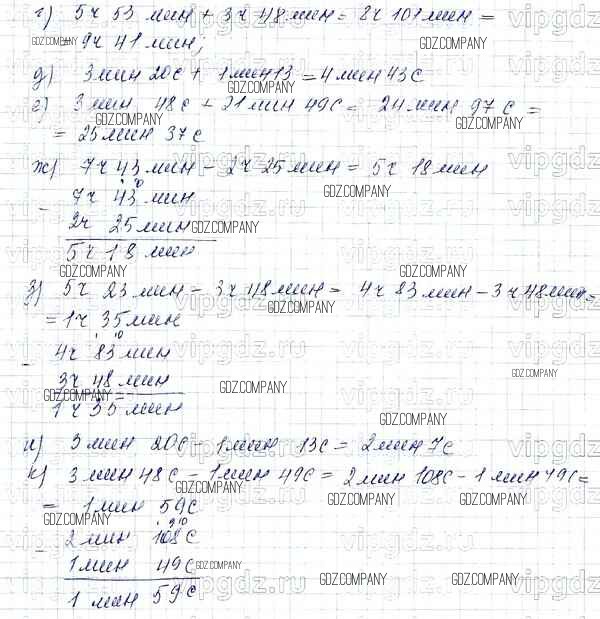 г) 5ч 53 мин + 3ч 48мин = 8ч 101мин =
= 9ч 41мин;
д) 3мин 20с + 1мин13 = 4мин 43с
г) 3мин 48с + 21мин 49с = 24мин 97с =
= 25мин 37с
ж) 7ч 43мин - 2ч 25мин = 5ч 18мин
- 7ч 43мин
2ч 25мин
5ч 18 мин
з) 5ч 23мин - 3ч 48мин = 4ч 83мин - 3ч 48мин =
= 1ч 35мин
- 4ч 83мин
3ч 48мин
1ч 35мин
и) 3мин 20с - 1мин 13с = 2мин 7с
к) 3мин 48с - 1мин 49с = 2мин 108с - 1мин 49с =
= 1мин 59с
- 2мин 108с
1мин 49с
1мин 59с
GDZ.COMPANY
vipgdz.ru